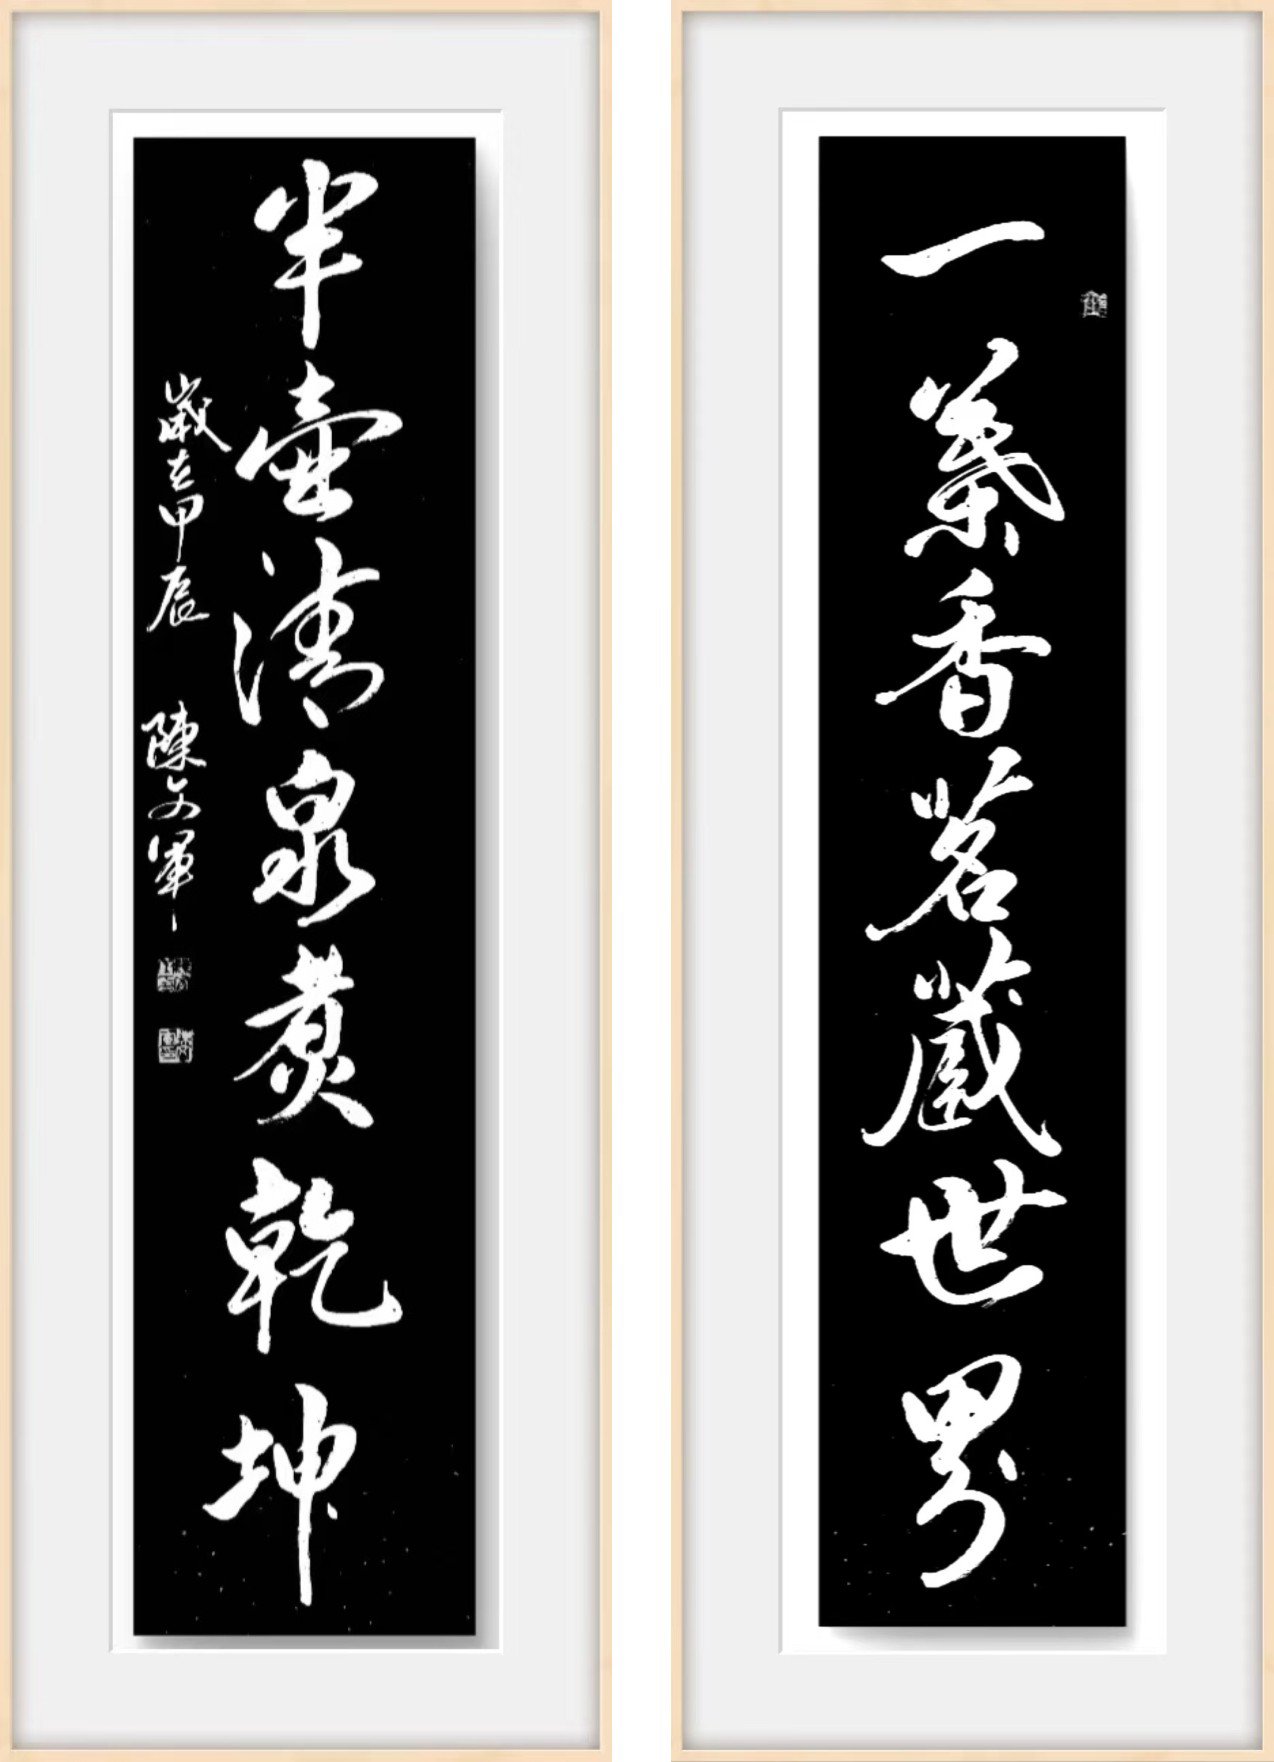 一葉香茗藏世界
半壺清泉煮乾坤
歲在甲辰 陳文軍